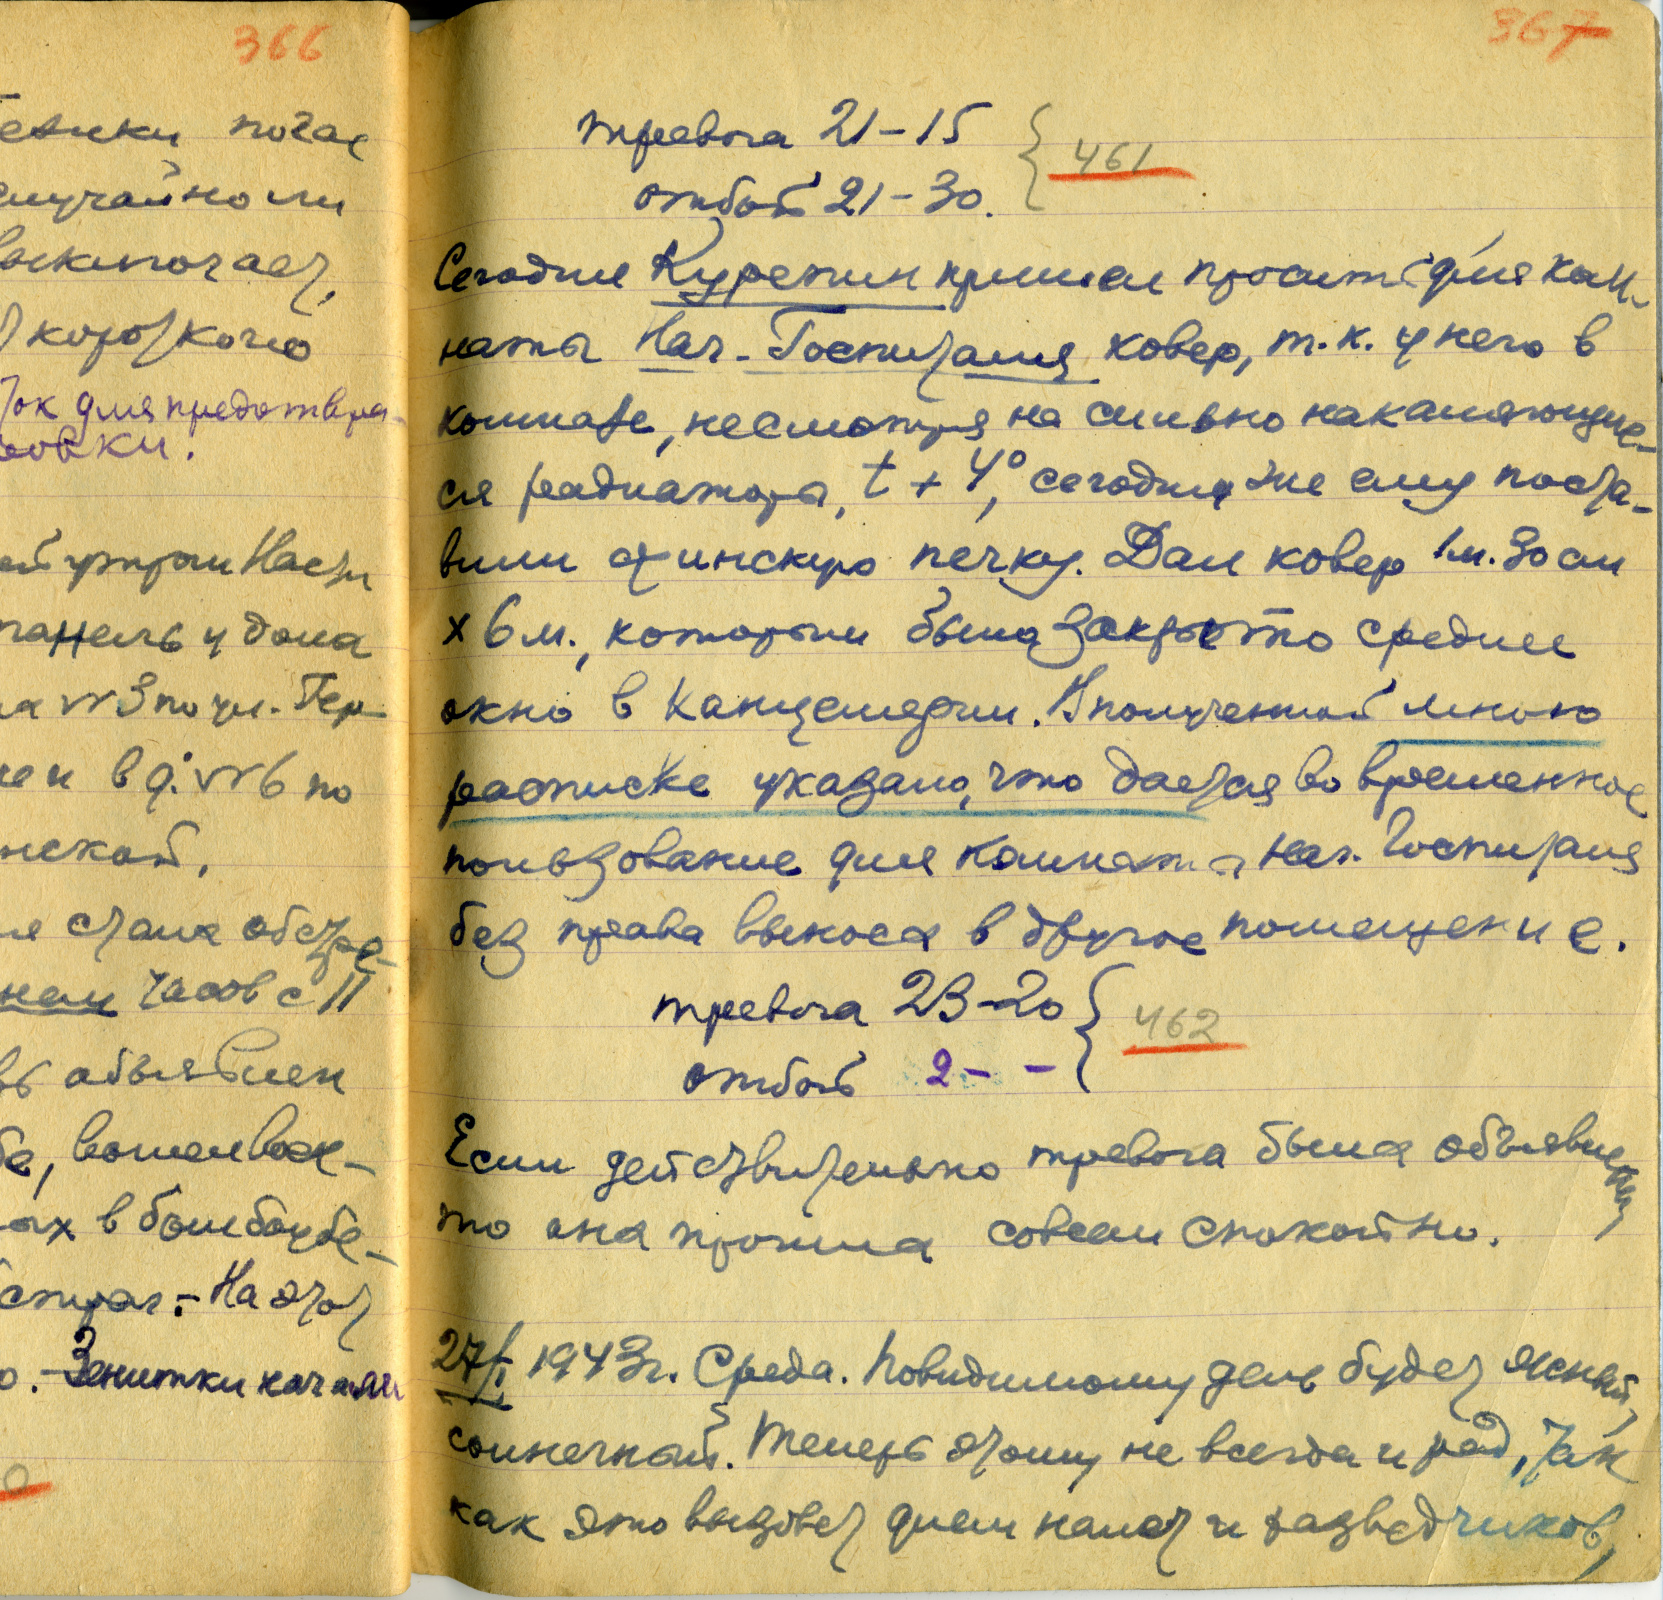 366
евики погас
случайно ли
выключает,
коротко
ток для предотвра-
ровки.
панель у дома
№3 по ул. Гер
в д. №6 по
нской.
стала обстре-
нем часов с 11
объявлен
вошел вое-
ых в бомбоубе-
На этот
о. - Зенитки начали
367
тревога 21-15
461
отбой 21-30.
Сегодня Курепин пришел просить для ком-
наты Нач. Госпиталя ковер, т.к. у него в
комнате, несмотря на сильно накаляющие-
ся радиаторы, t + 4°, сегодня же ему поста-
вили финскую печку. Дал ковер 1м. 30 см
х 6 м., которым было закрыто среднее
окно в канцелярии. В полученной мною
расписке указано, что дается во временное
пользование для комнаты нач. Госпиталя
без права выноса в другое помещение.
тревога 23-20
462
отбой 2- -
Если действительно тревога была объявлена,
то она прошла совсем спокойно.
27/I 1943г. Среда. Повидимому день будет ясный,
солнечный. Теперь этому не всегда и рад, так
как это вызовет днем налет и разведчиков,